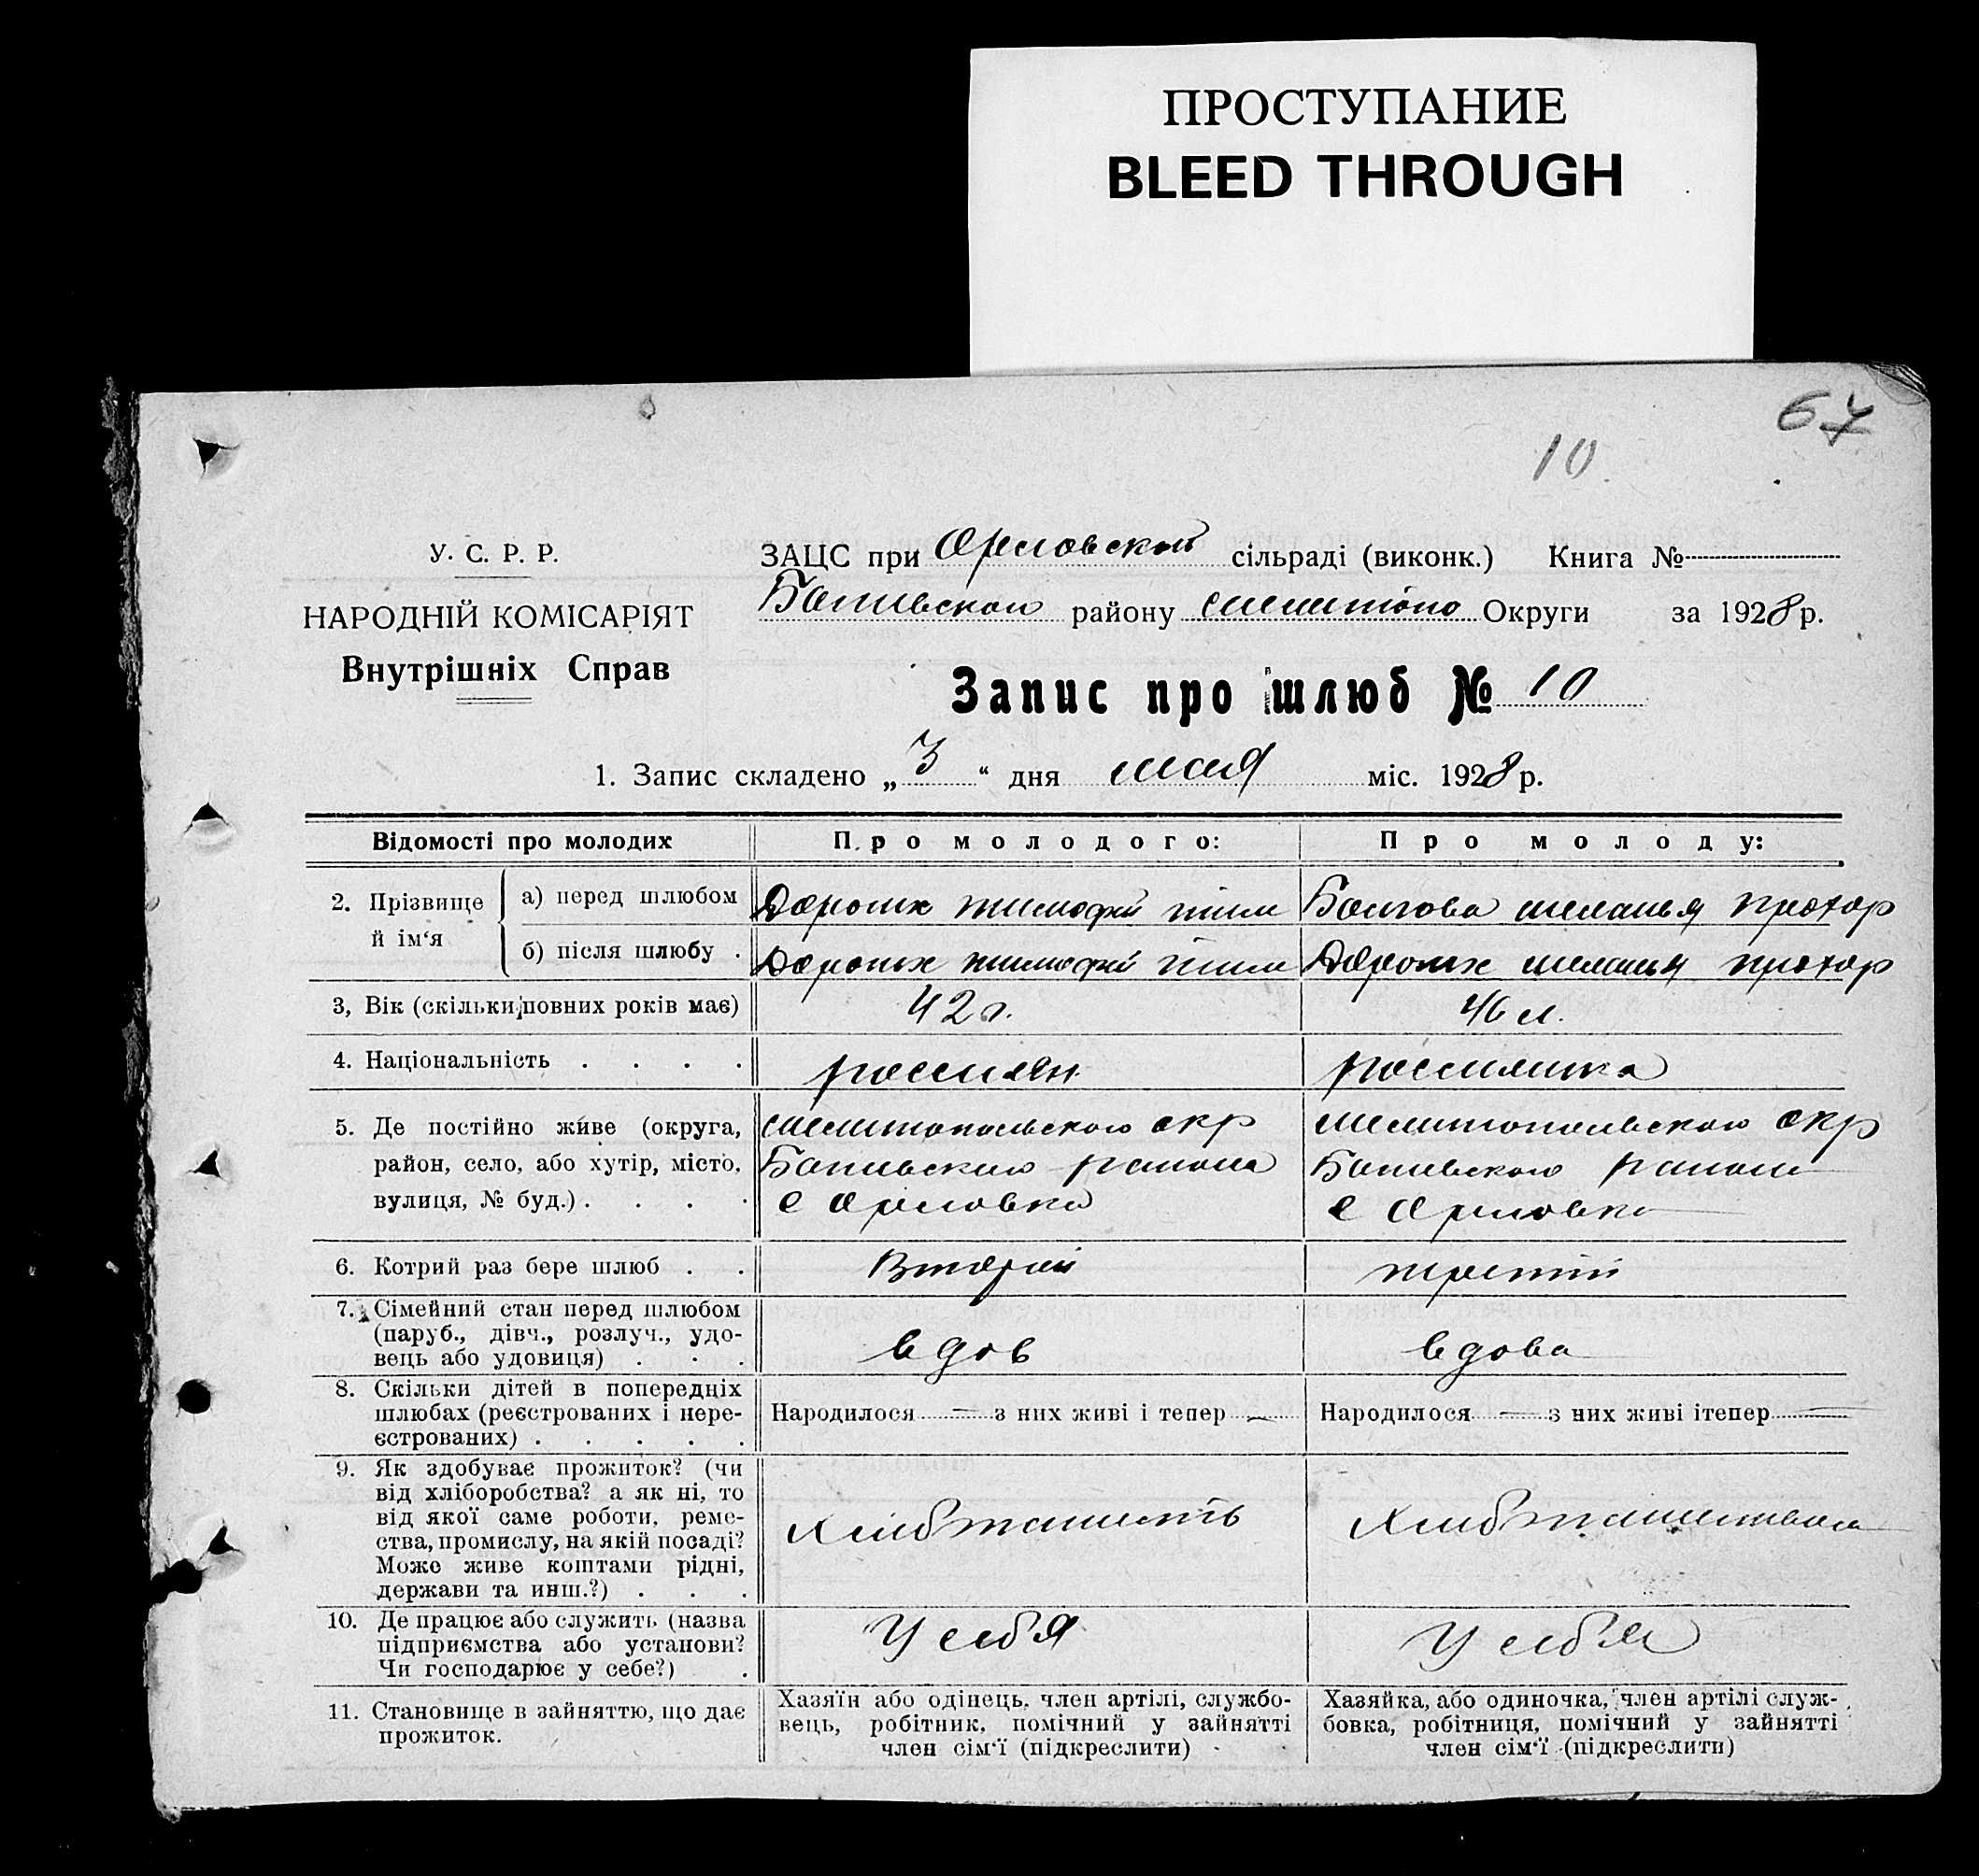 ПРОСТУПАНИЕ
BLEED THROUGH
67
10
У. С. Р. Р.
НАРОДНІЙ КОМІСАРІЯТ
Внутрішніх Справ
ЗАЦС при Орловской сільраді (виконк.) Книга №
району Округи за 1928 р.
Запис про шлюб № 10
1. Запис складено „ 3 “ дня мая міс. 1928 р.
Відомості про молодих
Про молодого:
Про молоду:
2. Прізвище й ім‘я
а) перед шлюбом
Тимофей Тим
меланья Прохор
б) після шлюбу .
Тимофей Тим
меланья Прохор
3, Вік (скільки повних років має)
42 г.
46 л.
4. Національність . . . .
россиян
россиянка
5. Де постійно живе (округа,
район, село, або хутір, місто,
вулиця, № буд.) . . . .
мелитопольского окр
района
с Орловка
мелитопольского окр
с Орловка
6. Котрий раз бере шлюб . .
Второй
третий
7. Сімейний стан перед шлюбом
(паруб., дівч., розлуч., удо-
вець або удовиця) . . .
вдов
вдова
8. Скільки дітей в попередніх
шлюбах (реєстрованих і нере-
єстрованих) . . . . .
Народилося — з них живі і тепер —
Народилося — з них живі ітепер —
9. Як здобуває прожиток? (чи
від хліборобства? а як ні, то
від якої саме роботи, реме-
ства, промислу, на якій посаді?
Може живе коштами рідні,
держави та инш.?) . . .
10. Де працює або служить (назва
підприємства або установи?
Чи господарює у себе?) .
У себя
У себя
11. Становище в зайняттю, що дає
прожиток.
Хазяїн або одінець, член артілі, службо-
вець, робітник, помічний у зайнятті
член сім‘ї (підкреслити)
Хазяйка, або одиночка, член артілі служ-
бовка, робітниця, помічний у зайнятті
член сім‘ї (підкреслити)